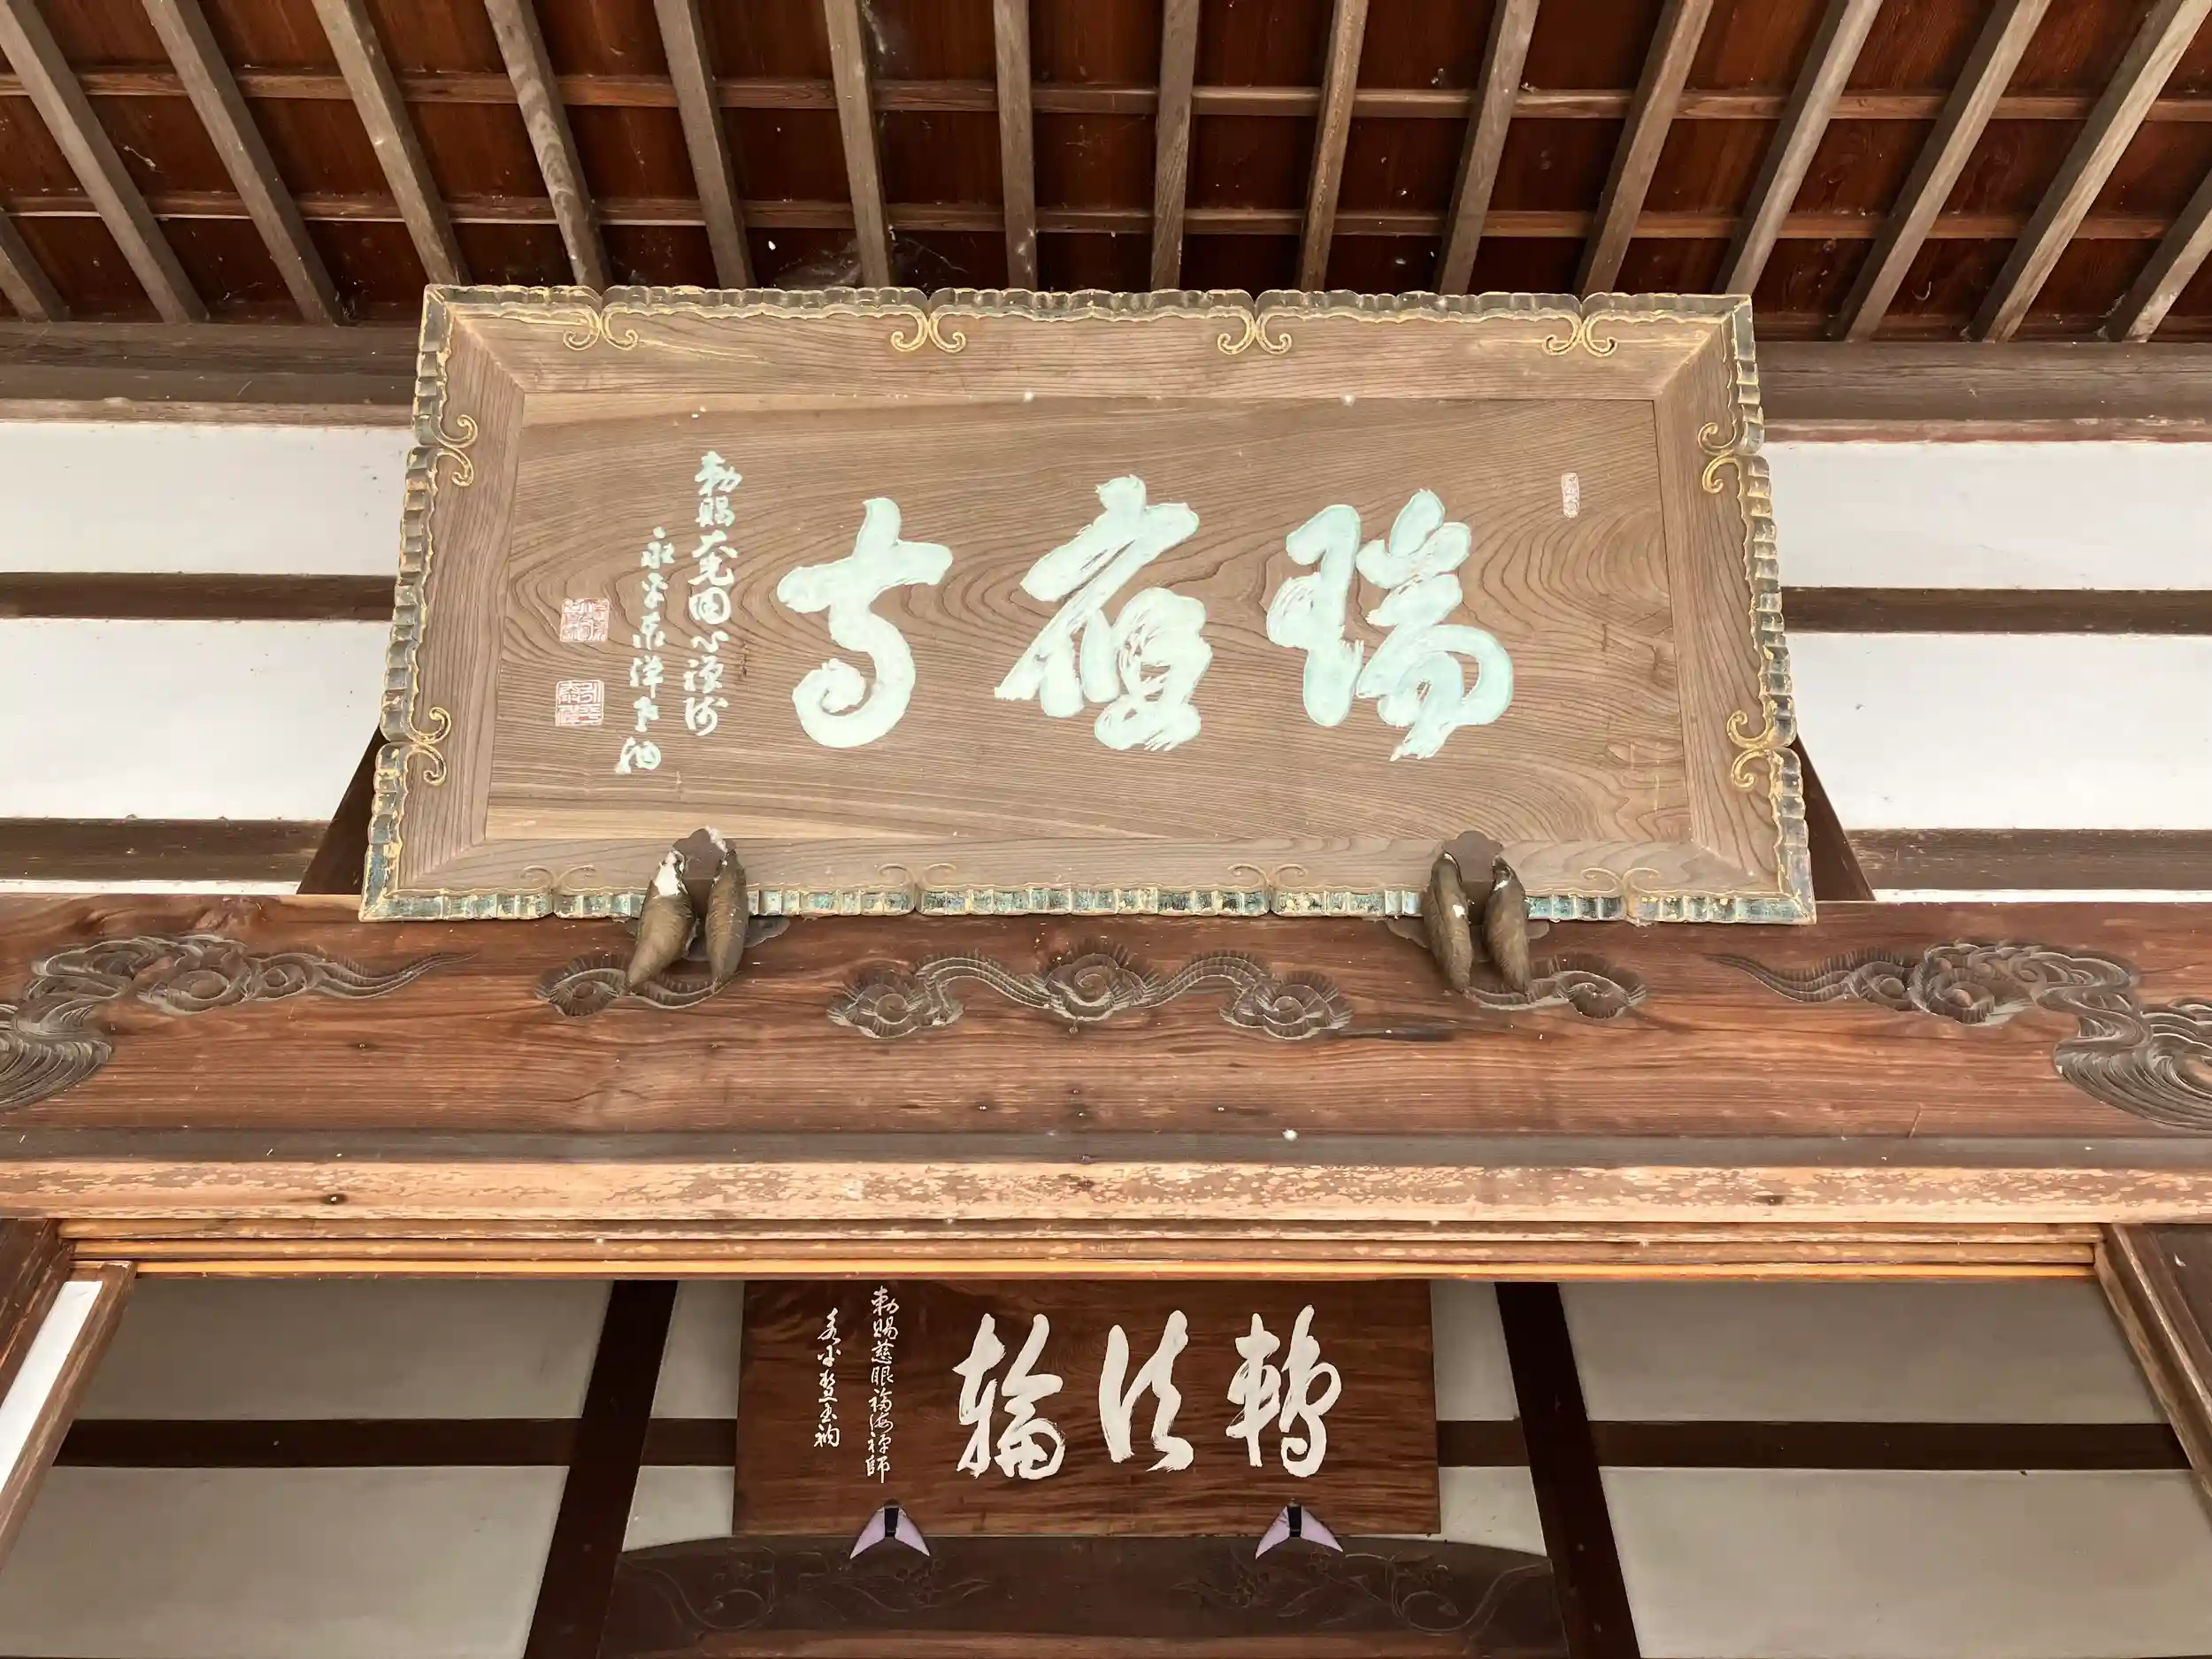 瑞應寺
勅賜大光圓心禪師
永平泰禅
轉法輪
勅賜慈眼福海禅師
永平慧玉衲